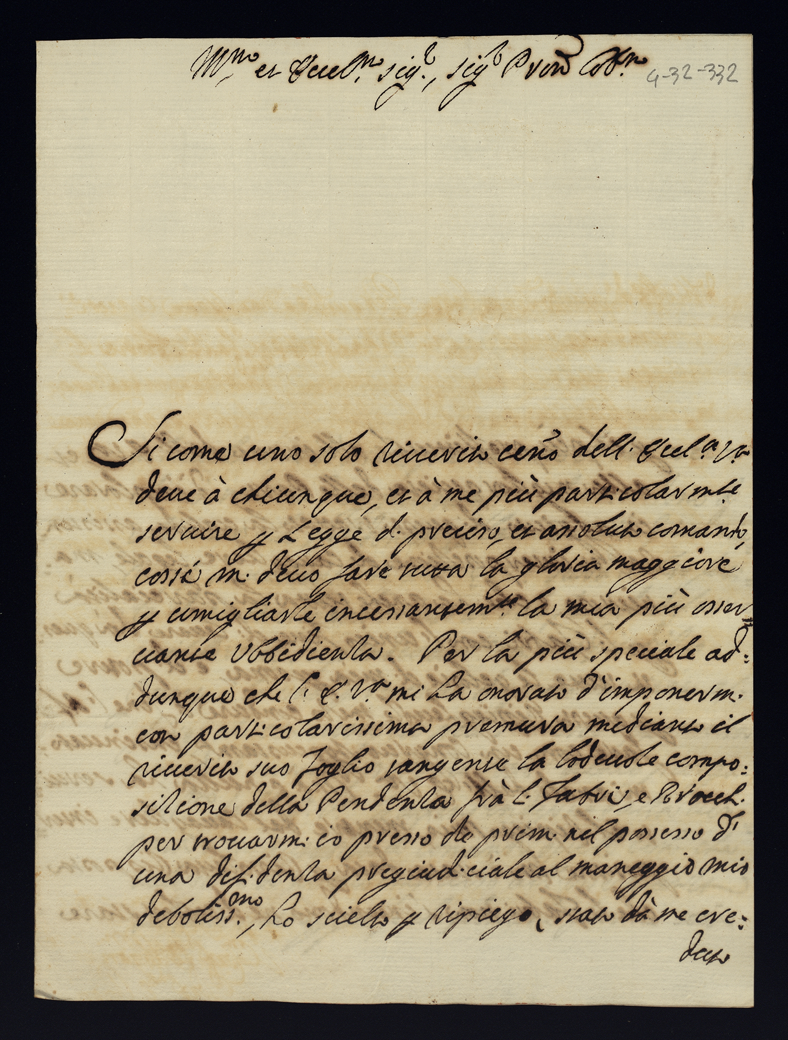 Ill.mo et Eccel.mo sig.r, sig.r Pron Col.mo
4-32-332
Si come uno solo riverito ceño dell. Eccel.a V.a
deve à chiunque, et à me più particolarmte
servire p Legge d. preciso, et assoluto comando,
cossì m. devo fare tutta la gloria maggiore
p umigliarle incessantem.te la mia più osser=
vante Ubbidienza. Per la più speciale ad=
dunque che l. E. V.a mi hà onorato d'imponerm.
con particolarissima premura mediante il
riverito suo Foglio tangente la lodevole compo=
sitione della Pendenza frà l. Fabris, e Brocch.
per trovarm. io presso de prim. nel possesso d'
una dif.denza pregiud.ciale al maneggio mio
deboliss.mo, hò scielto p ripiego, stato dà me cre=
duto